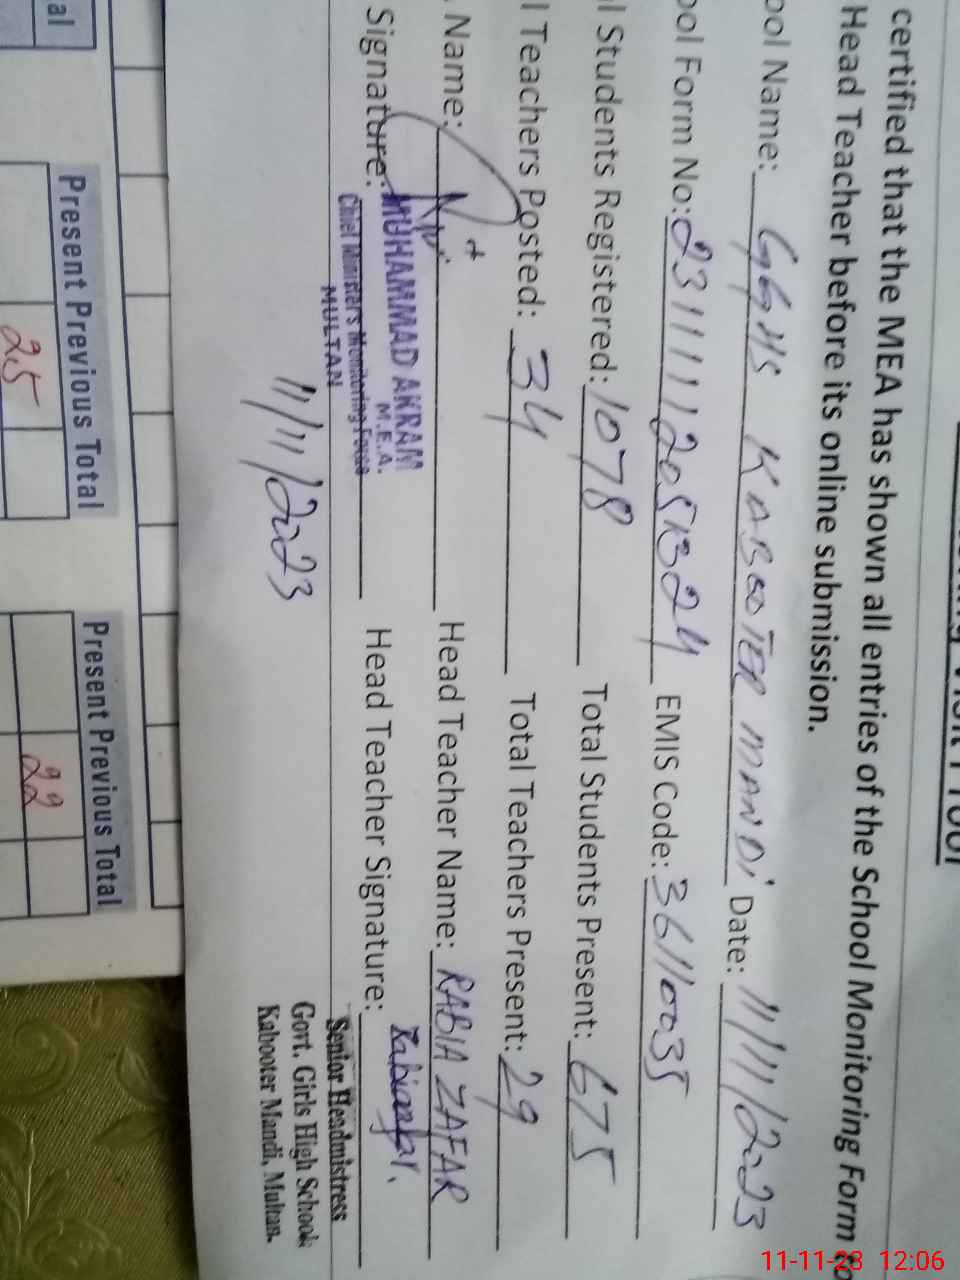 certified that the MEA has shown all entries of the School Monitoring Form to
Head Teacher before its online submission.
ool Name: GGHS KABOOTER MANDI Date: 11/11/2023
ool Form No: 2311112051324 EMIS Code: 36110035
l Students Registered: 1078 Total Students Present: 675
l Teachers Posted: 34 Total Teachers Present: 29
Name: Head Teacher Name: RABIA ZAFAR
Signature: Head Teacher Signature:
MUHAMMAD AKRAM
M.E.A.
Chief Ministers Monitoring Force
MULTAN
11/11/2023
Senior Headmistress
Govt. Girls High School
Kabooter Mandi, Multan.
al
Present Previous Total
25
Present Previous Total
22
11-11-23 12:06